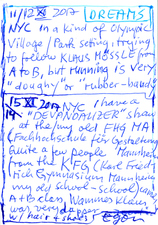 11/12 XI 2017 DREAMS
NYC in a kind of Olympic
Village/Park seting, trying
to follow KLAUS MÖSSLE from
A to B, but running is very
"doughy" or "rubber-band"
15 XI 2017 NYC I have a
"DEVANDALIZER" show
at the/my old FHG MA
(Fachhochschule für Gestaltung
Quite a few people Mannheim
from the KFG (Karl Friedrich
Gymnasium Mannheim
my old school-school) came,
A + B class, Hannes Klaus
was very dapper
w/ hair + shoes